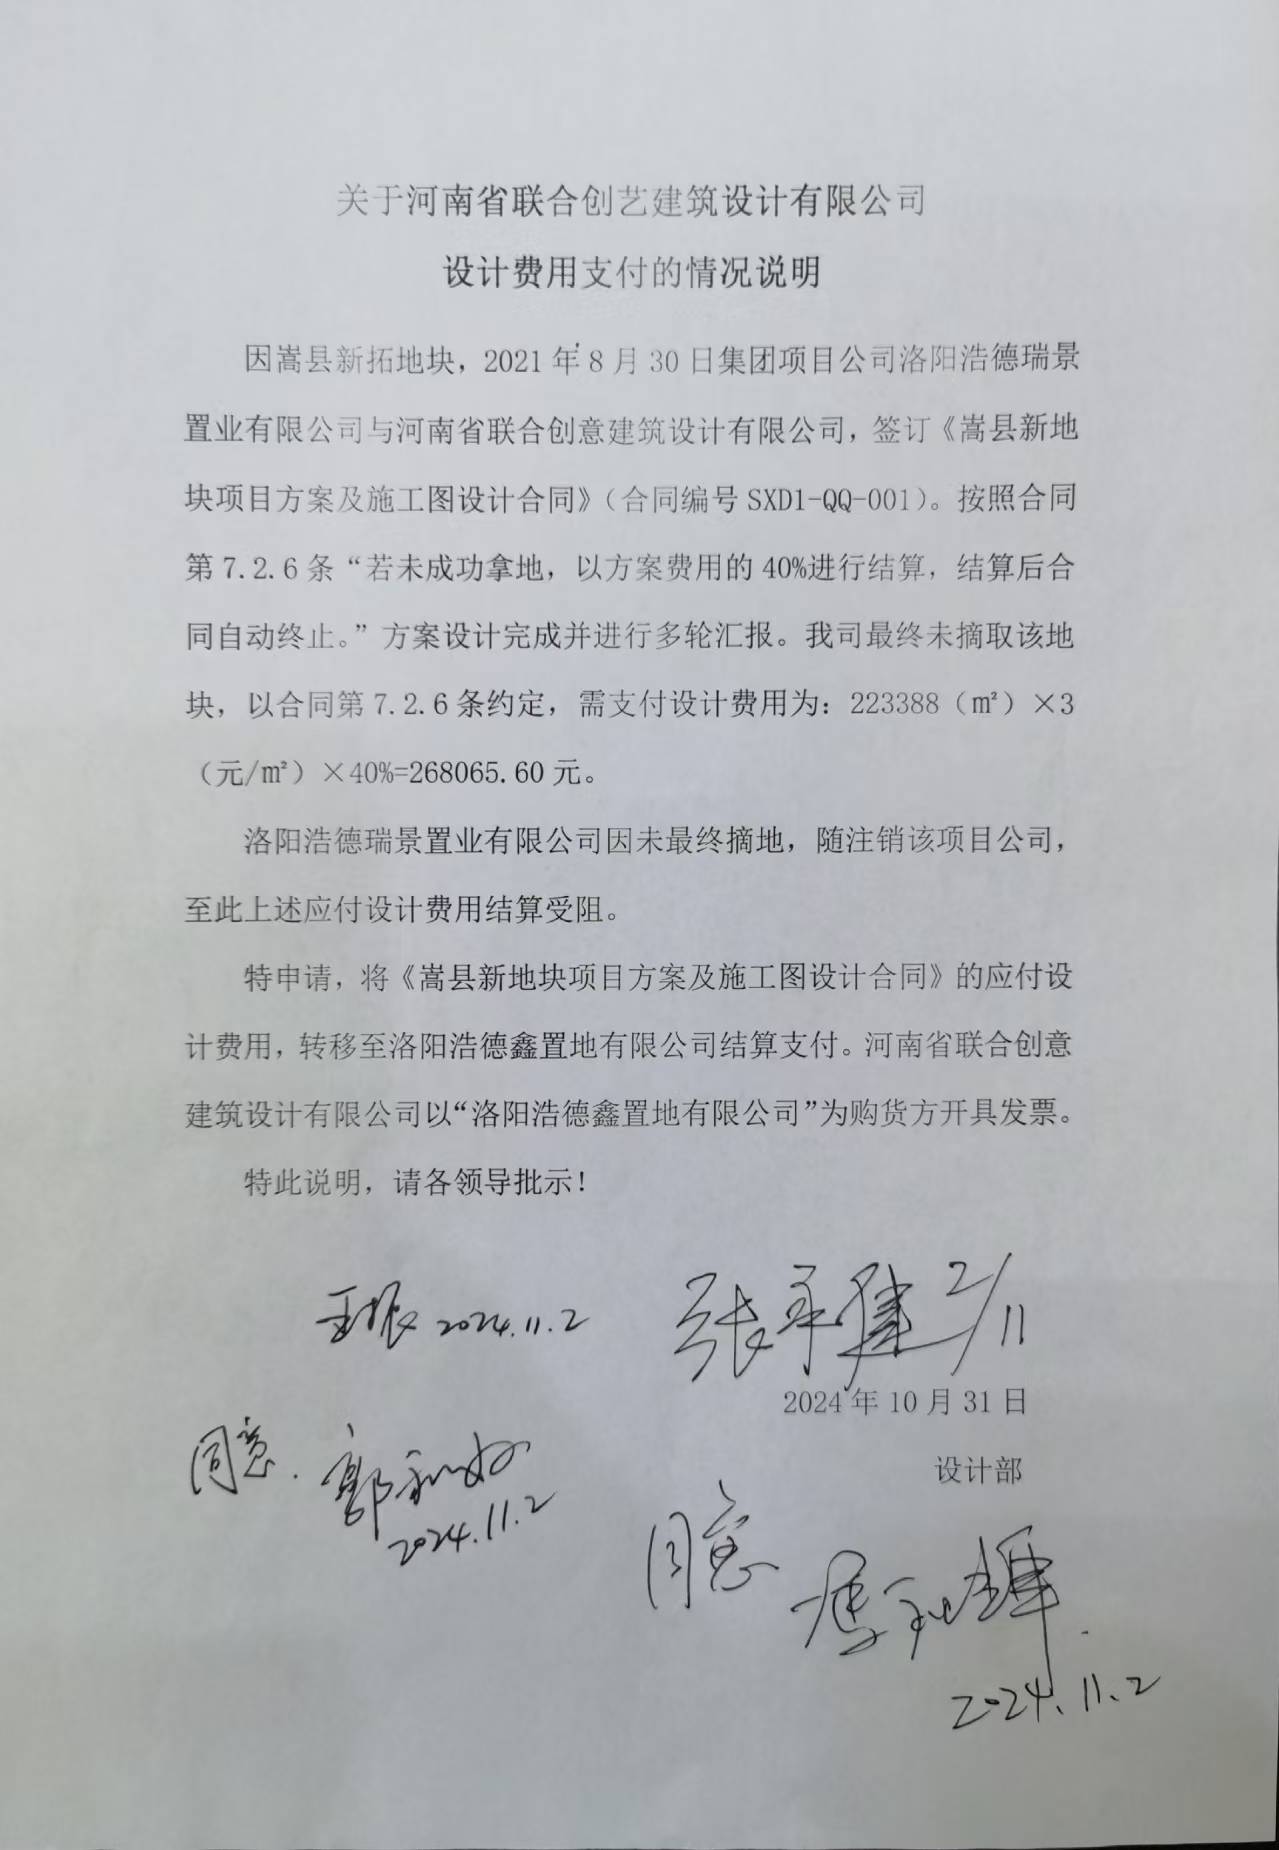 关于河南省联合创艺建筑设计有限公司
设计费用支付的情况说明
因嵩县新拓地块，2021年8月30日集团项目公司洛阳浩德瑞景
置业有限公司与河南省联合创意建筑设计有限公司，签订《嵩县新地
块项目方案及施工图设计合同》（合同编号 SXD1-QQ-001）。按照合同
第 7.2.6 条“若未成功拿地，以方案费用的 40%进行结算，结算后合
同自动终止。”方案设计完成并进行多轮汇报。我司最终未摘取该地
块，以合同第 7.2.6 条约定，需支付设计费用为：223388（㎡）×3
（元/㎡）×40%=268065.60 元。
洛阳浩德瑞景置业有限公司因未最终摘地，随注销该项目公司，
至此上述应付设计费用结算受阻。
特申请，将《嵩县新地块项目方案及施工图设计合同》的应付设
计费用，转移至洛阳浩德鑫置地有限公司结算支付。河南省联合创意
建筑设计有限公司以“洛阳浩德鑫置地有限公司”为购货方开具发票。
特此说明，请各领导批示！
2024.11.2
张 2/11
2024 年 10 月 31 日
设计部
同意. 郭
2024.11.2
同意
2024.11.2